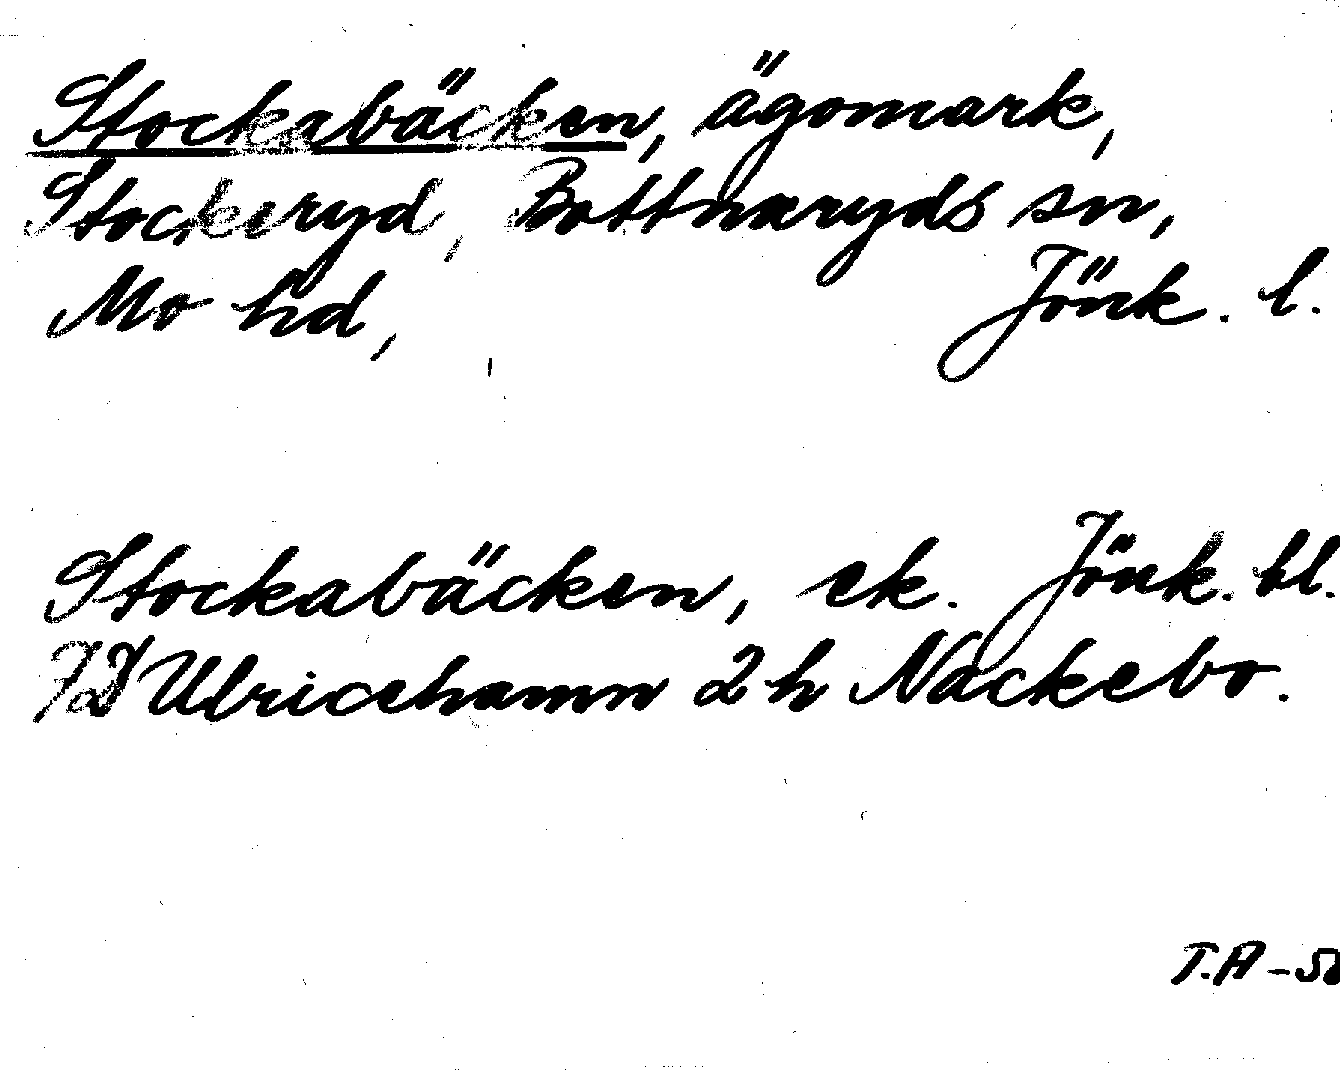 Stockabäcken, ägomark,
Stockeryd, Bottnaryds sn,
Mo hd, Jönk. l.
Stockabäcken, ek. Jönk. bl.
7D Ulricehamn 2h Nackebo.
T.A -